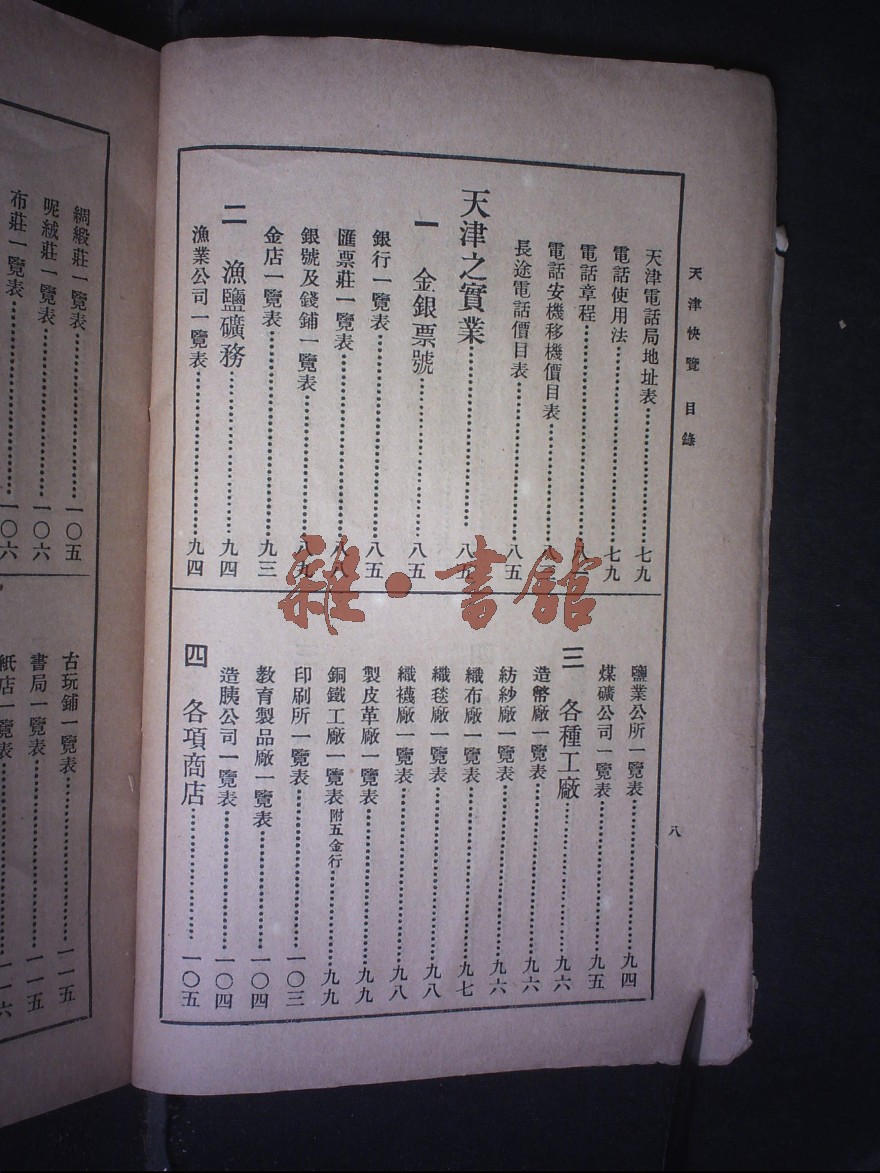 天津快覽 目錄
八
天津電話局地址表……七九
電話使用法……七九
電話章程……八
電話安機移機價目表……八
長途電話價目表……八五
天津之實業……八五
一 金銀票號……八五
銀行一覽表……八五
匯票莊一覽表……八八
銀號及錢鋪一覽表……八九
金店一覽表……九三
二 漁鹽礦務……九四
漁業公司一覽表……九四
鹽業公所一覽表……九四
煤礦公司一覽表……九五
三 各種工廠……九六
造幣廠一覽表……九六
紡紗廠一覽表……九六
織布廠一覽表……九七
織毯廠一覽表……九八
織襪廠一覽表……九八
製皮革廠一覽表……九九
銅鐵工廠一覽表附五金行……九九
印刷所一覽表……一〇三
教育製品廠一覽表……一〇四
造胰公司一覽表……一〇四
四 各項商店……一〇五
綢緞莊一覽表……一〇五
呢絨莊一覽表……一〇六
布莊一覽表……一〇六
古玩鋪一覽表……一一五
書局一覽表……一一五
紙店一覽表……一一六
雜·書館